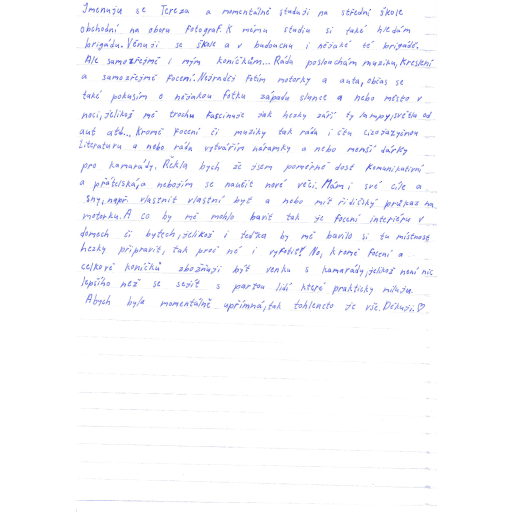 Jmenuju se Tereza a momentálně studuji na střední škole
obchodní na oboru Fotograf. K mému studiu si také hledám
brigádu. Věnuji se škole a v budoucnu i nějaké té brigádě.
Ale samozřejmě i mým koníčkům... Ráda poslouchám muziku, Kreslení
a samozřejmě Focení. Nejradší fotím motorky a auta, občas se
také pokusím o nějakou fotku západu slunce a nebo město v
noci, jelikož mě trochu fascinuje jak hezky září ty lampy, světla od
aut atd... Kromě Focení či muziky tak ráda i čtu cizojazyčnou
Literaturu a nebo ráda vytvářím náramky a nebo menší dárky
pro kamarády. Řekla bych že jsem poměrně dost komunikativní
a přátelská, a nebojím se naučit nové věci. Mám i své cíle a
sny, např. vlastnit vlastní byt a nebo mít řidičský průkaz na
motorku. A co by mě mohlo bavit tak je focení interiéru v
domech či bytech, jelikož i teďka by mě bavilo si tu místnost
hezky připravit, tak proč ne i vyfotit? No, kromě focení a
celkově koníčků zbožňuji být venku s kamarády, jelikož není nic
lepšího než se sejít s partou lidí které prakticky miluju.
Abych byla momentálně upřímná, tak tohleto je vše. Děkuji. ♡